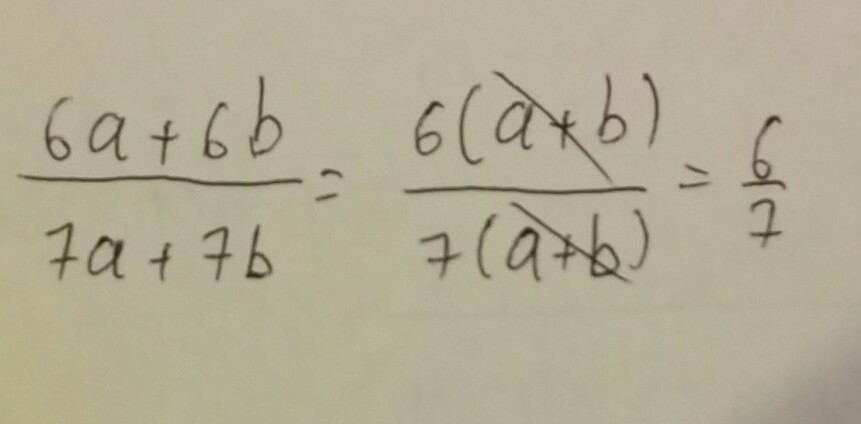 (6a+6b)/(7a+7b) = (6(a+b))/(7(a+b)) = 6/7